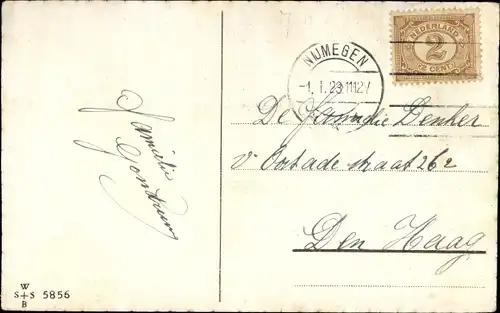 NIJMEGEN
-1. 1. 23 11-12V
NEDERLAND
2
2 CENT
De Familie Denker
v Ostade straat 262
Den Haag
Familie
W
S+S 5856
B